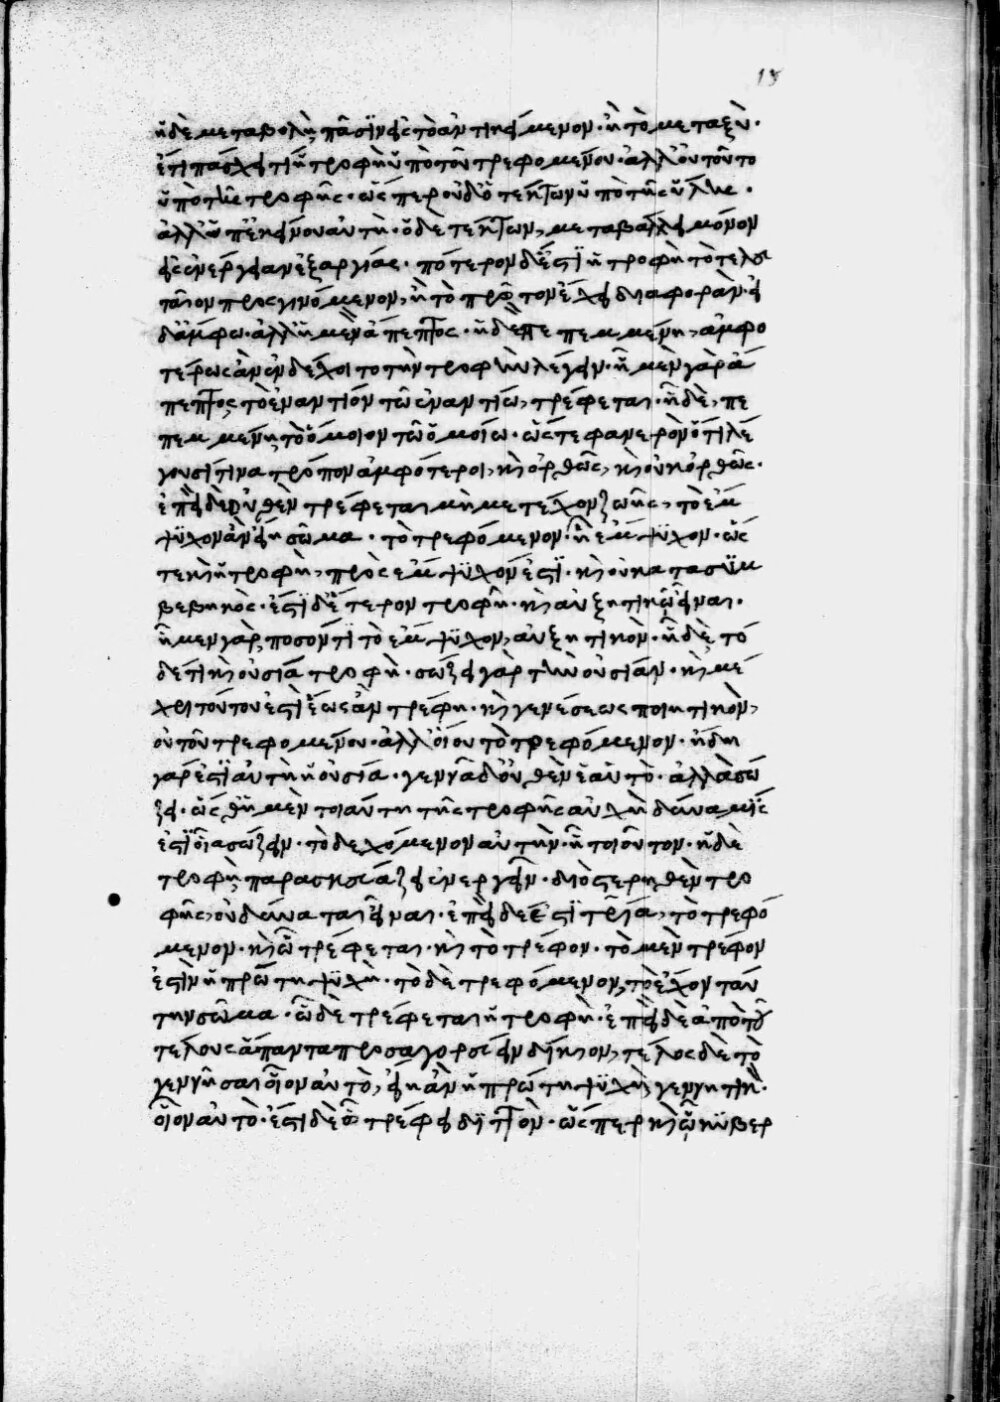 13
ἡ δὲ μεταβολὴ, πᾶσιν εἰς τὸ ἀντικείμενον· ἢ τὸ μεταξύ·
ἔτι πάσχει τὶ ἡ τροφὴ ὑπὸ τοῦ τρεφομένου· ἀλλ' οὐ τοῦτο
ὑπὸ τῆς τροφῆς· ὥσπερ οὐδ' ὁ τέκτων ὑπὸ τῆς ὕλης·
ἀλλ' ὑπ' ἐκείνου αὐτή· ὁ δὲ τέκτων, μεταβάλλει μόνον
εἰς ἐνέργειαν ἐξ ἀργίας· πότερον δ' ἐστὶν ἡ τροφὴ τὸ τελευ
ταῖον προσγινόμενον, ἢ τὸ πρῶτον ἔχει διαφοράν· εἰ
δ' ἄμφω· ἀλλ' ἡ μὲν ἄπεπτος· ἡ δὲ πεπεμμένη, ἀμφο
τέρως ἂν ἐνδέχοιτο τὴν τροφὴν λέγειν· ᾗ μὲν γὰρ ἄ
πεπτος, τὸ ἐναντίον τῶ ἐναντίω, τρέφεται· ᾗ δὲ, πε
πεμμένη, τὸ ὅμοιον τῶ ὁμοίω· ὥστε φανερὸν ὅτι λέ
γουσί τινα τρόπον ἀμφότεροι, καὶ ὀρθῶς, καὶ οὐκ ὀρθῶς·
ἐπεὶ δὲ οὐθὲν τρέφεται μὴ μετέχον ζωῆς, τὸ ἔμ
ψυχον ἂν εἴη σῶμα· τὸ τρεφόμενον· ᾗ ἔμψυχον· ὥς
τε καὶ ἡ τροφὴ, πρὸς ἔμψυχόν ἐστι· καὶ οὐ κατὰ συμ
βεβηκός· ἔστι δ' ἕτερον τροφῆ· καὶ αὐξητικῶ εἶναι·
ᾗ μὲν γὰρ ποσόν τι τὸ ἔμψυχον, αὐξητικόν· ᾗ δὲ τό
δε τι καὶ οὐσία τροφή· σώζει γὰρ τὴν οὐσίαν· καὶ μέ
χρι τούτου ἐστὶ ἕως ἂν τρέφη· καὶ γενέσεως ποιητικὸν,
οὐ τοῦ τρεφομένου· ἀλλ' οἷον τὸ τρεφόμενον· ἤδη
γάρ ἐστι αὐτὴ ἡ οὐσία· γεννᾶ δ' οὐθὲν ἑαυτό· ἀλλὰ σώ
ζει· ὥσθ' ἡ μὲν τοιαύτη τῆς τροφῆς ἀρχὴ δύναμίς
ἐστι οἵα σώζειν· τὸ δεχόμενον αὐτὴν· ᾗ τοιοῦτον· ἡ δὲ
τροφὴ, παρασκευάζει ἐνεργεῖν· διὸ στερηθὲν τρο
φῆς, οὐ δύναται εἶναι· ἐπεὶ δὲ ἐστὶ τρία, τὸ τρεφό
μενον· καὶ ὧ τρέφεται· καὶ τὸ τρέφον· τὸ μὲν τρέφον
ἐστὶν ἡ πρώτη ψυχή· τὸ δὲ τρεφόμενον, τὸ ἔχον ταύ
την σῶμα· ὧ δὲ τρέφεται ἡ τροφή· ἐπεὶ δὲ ἀπὸ τοῦ
τέλους ἅπαντα προσαγορεύειν δίκαιον, τέλος δὲ τὸ
γεννῆσαι οἷον αὐτὸ, εἴη ἂν ἡ πρώτη ψυχὴ γεννητικὴ
οἷον αὐτό· ἔστι δὲ ὧ τρέφει διττόν· ὥσπερ καὶ ὧ κυβερ